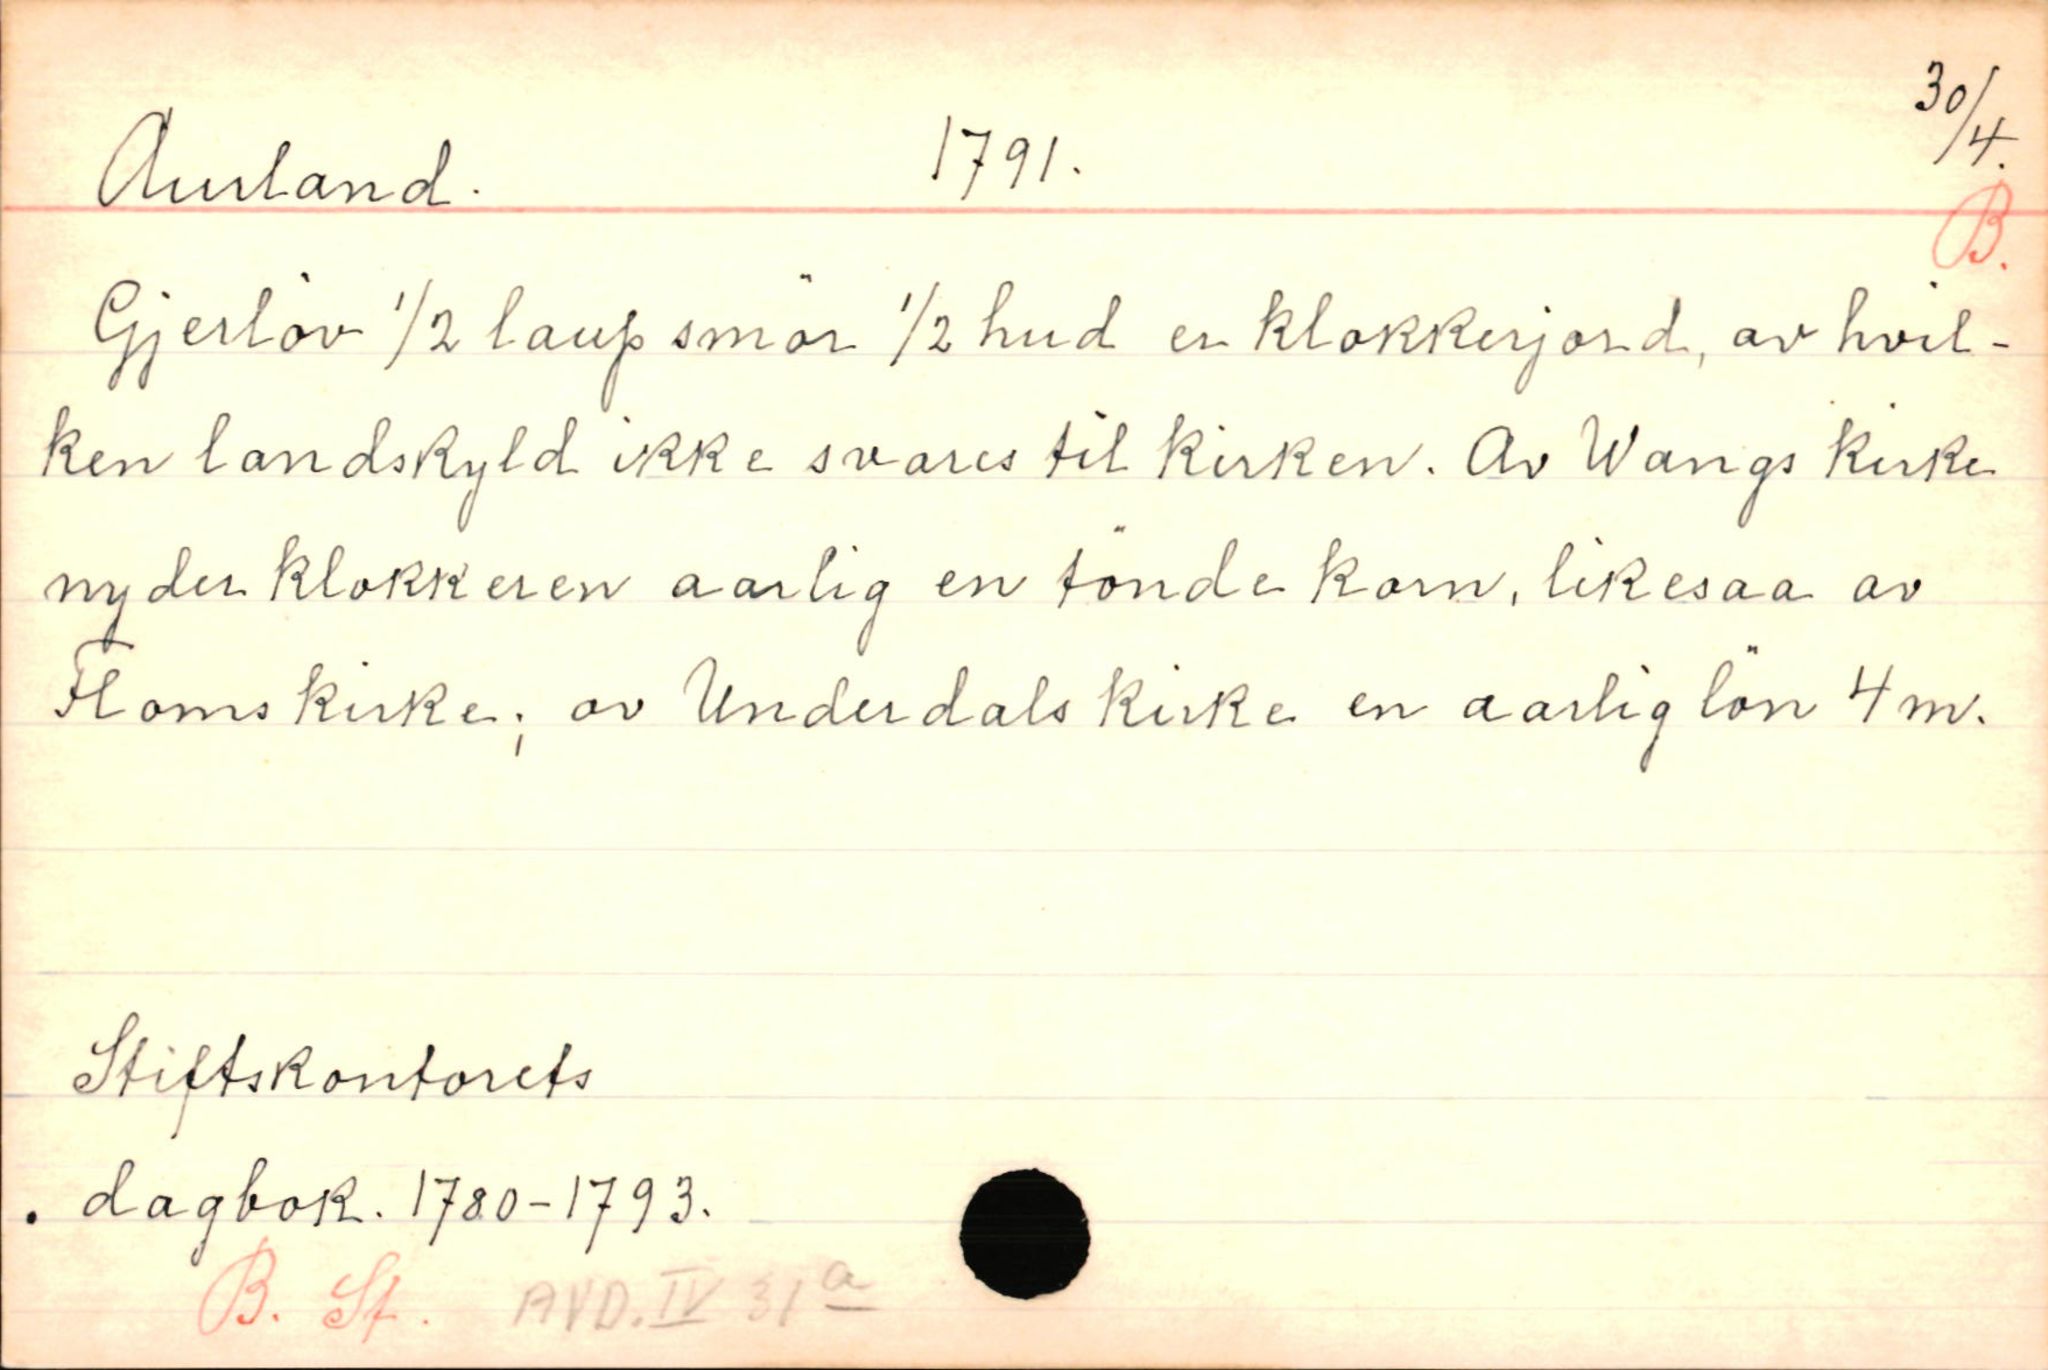 Aurland. 1791. 30/4.
B.
Gjerløv 1/2 laup smör 1/2 hud er klokkerjord, av hvil-
ken landskyld ikke svares til kirken. Av Wangs kirke
nyder klokkeren aarlig en tönde korn, likesaa av
Floms kirke; av Underdals kirke en aarlig lön 4 m.
Stiftskontorets
dagbok. 1780-1793.
B. St. AVD. IV 31 a